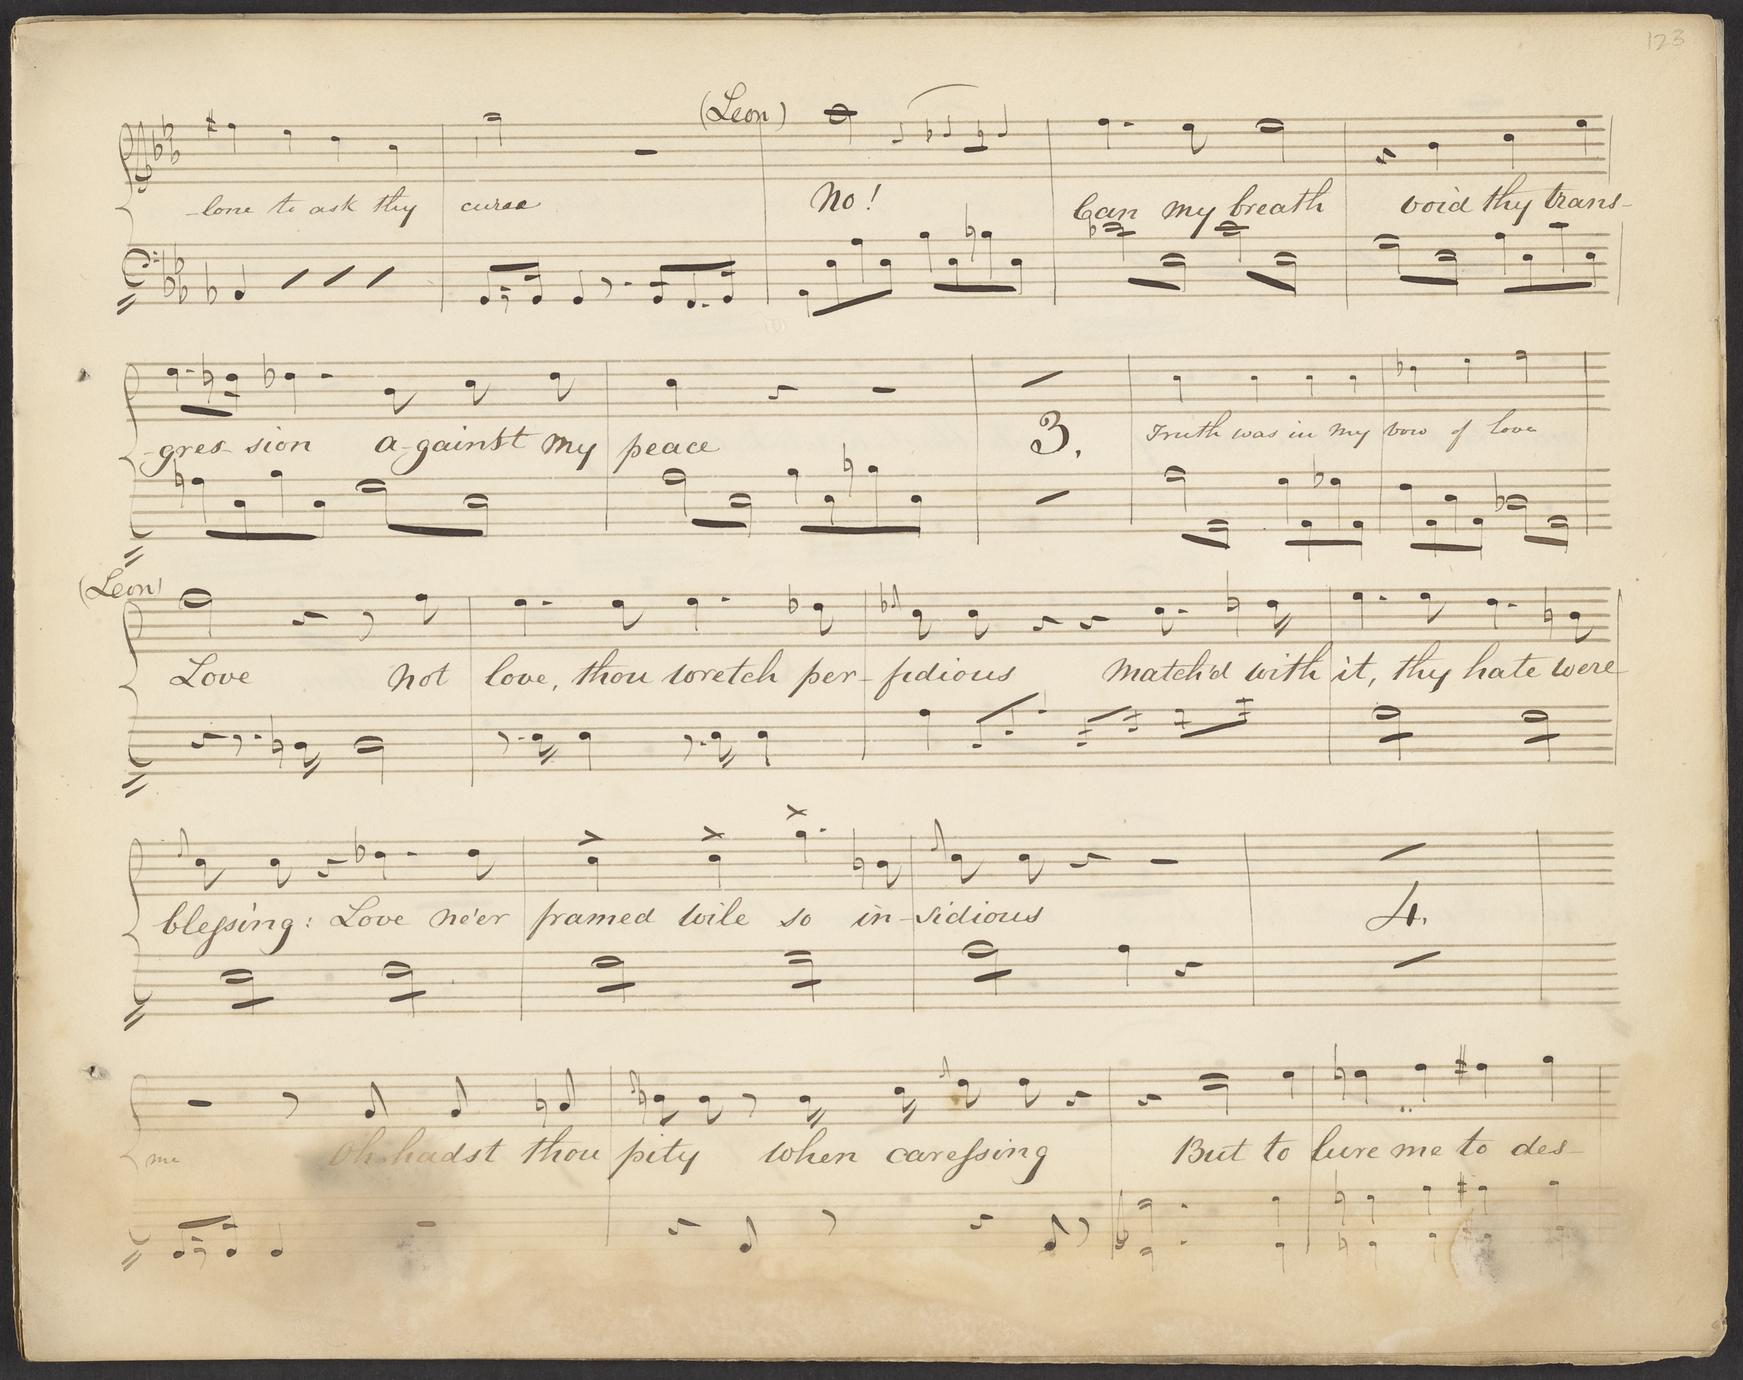 123
(Leon)
-lone to ask thy curse No! Can my breath void thy trans-
-gres-sion a-gainst my peace 3. Truth was in my vow of love
(Leon)
Love not love, thou wretch per-fidious match'd with it, thy hate were
blessing: Love ne'er framed wile so in-sidious 4.
me Oh hadst thou pity when caressing But to lure me to des-